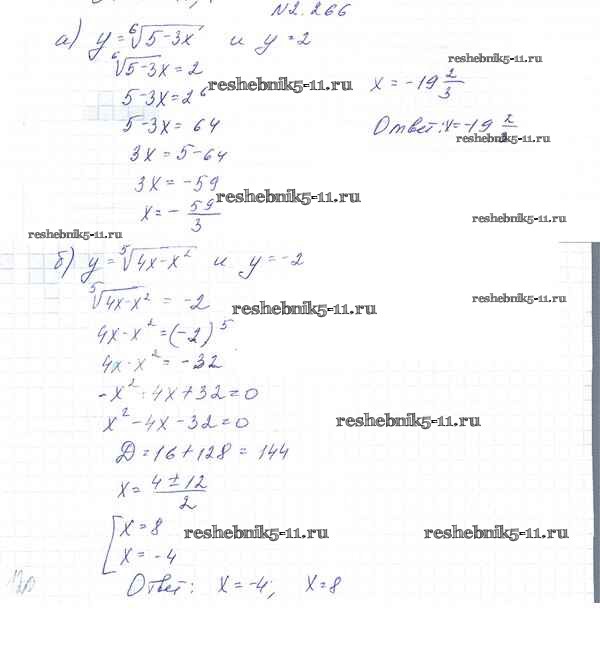 N2.266
а) y = ⁶√(5-3x) и y = 2
⁶√(5-3x) = 2
5-3x = 2⁶
5-3x = 64
3x = 5-64
3x = -59
x = - 59/3
reshebnik5-11.ru
x = -19 2/3
reshebnik5-11.ru
Ответ: x = -19 2/3
reshebnik5-11.ru
reshebnik5-11.ru
reshebnik5-11.ru
reshebnik5-11.ru
б) y = ⁵√(4x-x²) и y = -2
⁵√(4x-x²) = -2
reshebnik5-11.ru
reshebnik5-11.ru
4x-x² = (-2)⁵
4x-x² = -32
-x²+4x+32=0
x²-4x-32=0
reshebnik5-11.ru
D = 16+128 = 144
x = (4±12)/2
[ x = 8
x = -4
reshebnik5-11.ru
reshebnik5-11.ru
Ответ: x = -4; x = 8